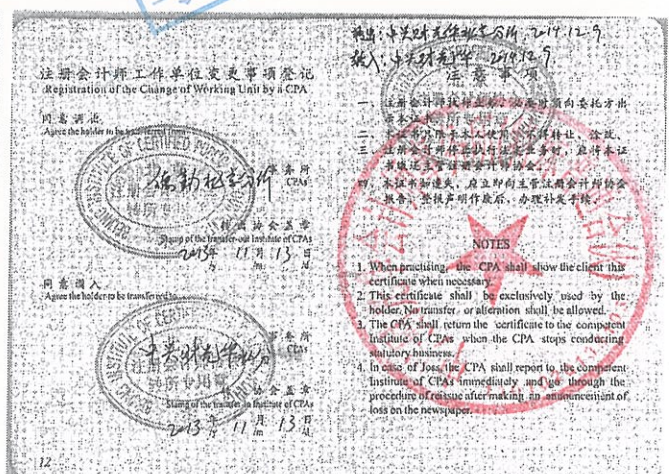 注册会计师工作单位变更事项登记
Registration of the Change of Working Unit by a CPA
同意调出
Agree the holder to be transferred from
事务所
CPAs
转出协会盖章
Stamp of the transfer-out Institute of CPAs
2013年 11月 13日
/y /m /d
同意调入
Agree the holder to be transferred to
事务所
CPAs
转入协会盖章
Stamp of the transfer-in Institute of CPAs
2013年 11月 13日
/y /m /d
12
2019.12.9
转入: 2019.12.9
注意事项
一、注册会计师执行业务,必要时须向委托方出
示本证书。
二、本证书只限于本人使用,不得转让、涂改。
三、注册会计师停止执行法定业务时,应将本证
书缴还主管注册会计师协会。
四、本证书如遗失,应立即向主管注册会计师协会
报告,登报声明作废后,办理补发手续。
NOTES
1. When practising, the CPA shall show the client this
certificate when necessary.
2. This certificate shall be exclusively used by the
holder. No transfer or alteration shall be allowed.
3. The CPA shall return the certificate to the competent
Institute of CPAs when the CPA stops conducting
statutory business.
4. In case of loss, the CPA shall report to the competent
Institute of CPAs immediately and go through the
procedure of reissue after making an announcement of
loss on the newspaper.